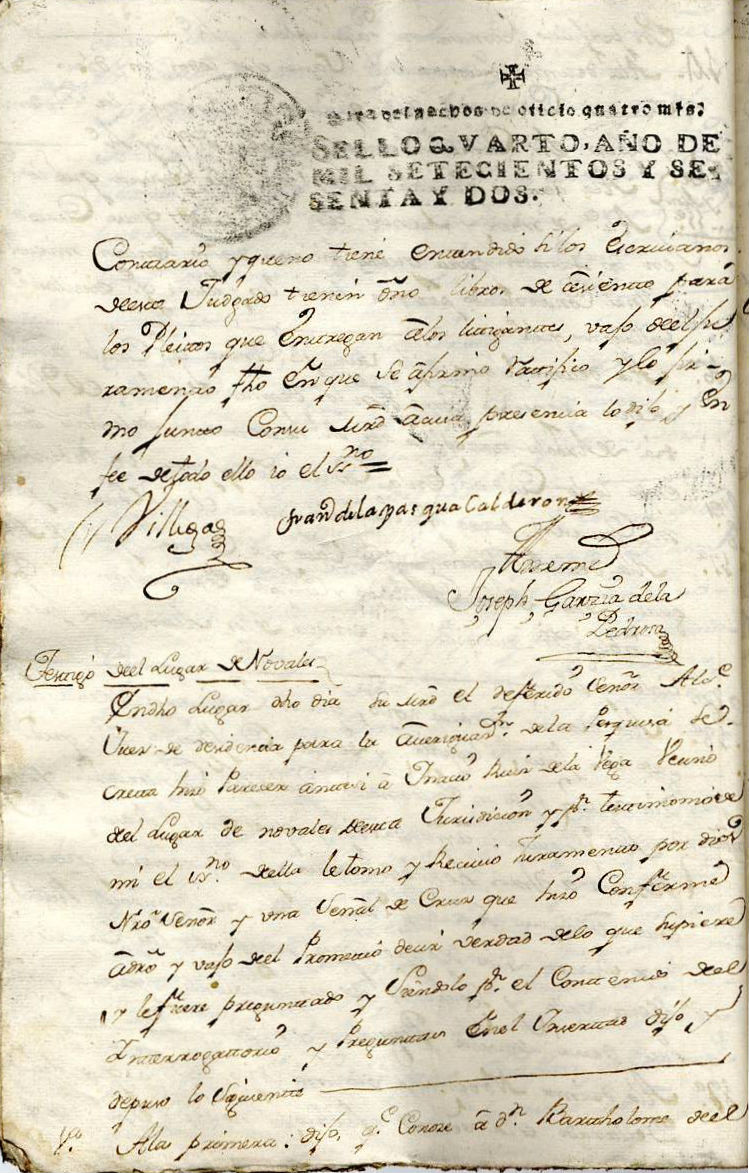 Para despachos de oficio quatro mrs.
SELLO QVARTO, AÑO DE
MIL SETECIENTOS Y SE-
SENTA Y DOS.
Contrario y que no tiene entendido si los Escrivanos
de este Juzgado tienen dho libro de asiento para
los Pleitos que entregan a los litigantes, vajo de el ju
ramento fho en que se afirmo ratifico y lo fir-
mo junto con su mrd a cuia presencia lo dijo, y en
fee de todo ello io el ssno
Villegas
Frando de la pasqua Calderon
Ante mi
Joseph Garzia de la
Pedrosa
Testigo de el Lugar de Novales
En dho Lugar dho dia su mrd el referido Señor Alce
Juez de residencia para la Averiguaon de la Pesquisa se
creta hizo Parecer ante si a Ruiz de la Vega Vecino
del Lugar de novales de esta Jurisdicion y pr testimonio de
mi el ssno de ella le tomo y Recivio Juramento por dios
Nro Señor y una Señal de Cruz que hizo Conforme
a dro y vajo del Prometio decir verdad de lo que supiere
y le fuere preguntado y Siendolo pr el Contenido de el
Interrogatorio y Preguntas en el Insertas dijo y
depuso lo siguiente
1a A la primera: dijo, qe Conoce a dn Bartholome de el